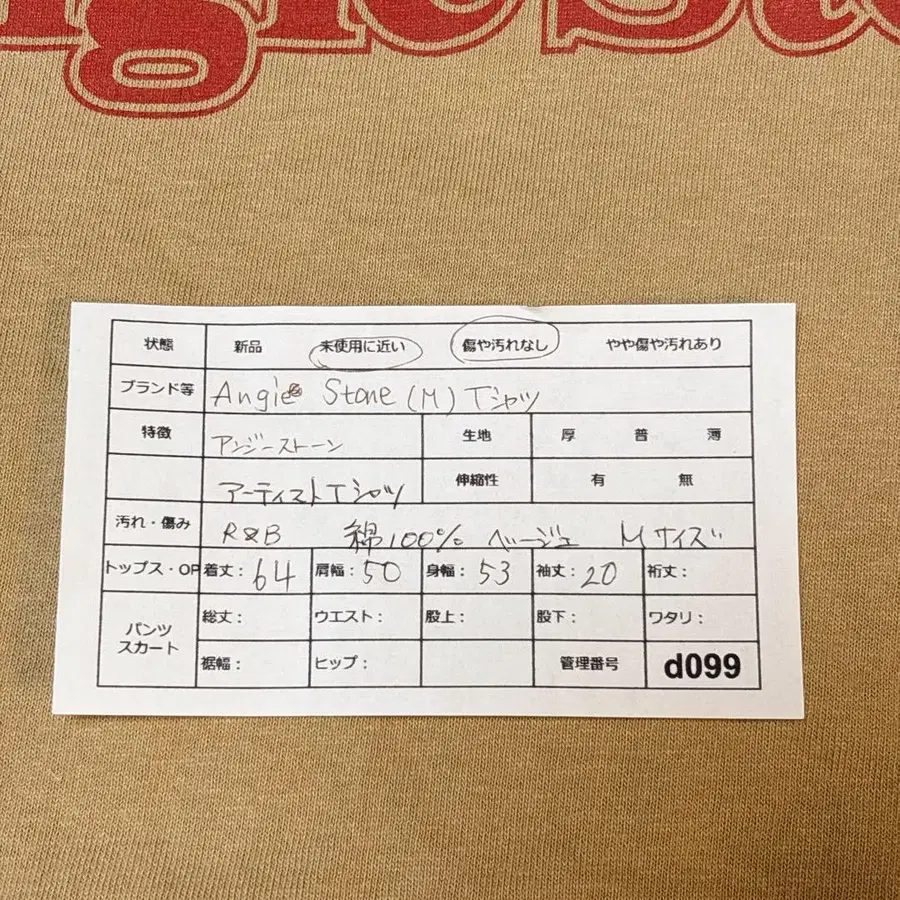 gieSto
状態 新品 未使用に近い 傷や汚れなし やや傷や汚れあり
ブランド等 Angie Stone (M) Tシャツ
特徴 アンジーストーン 生地 厚 普 薄
アーティストTシャツ 伸縮性 有 無
汚れ・傷み R&B 綿100% ベージュ Mサイズ
トップス・OP 着丈:64 肩幅:50 身幅:53 袖丈:20 裄丈:
パンツ スカート 総丈: ウエスト: 股上: 股下: ワタリ:
裾幅: ヒップ: 管理番号 d099